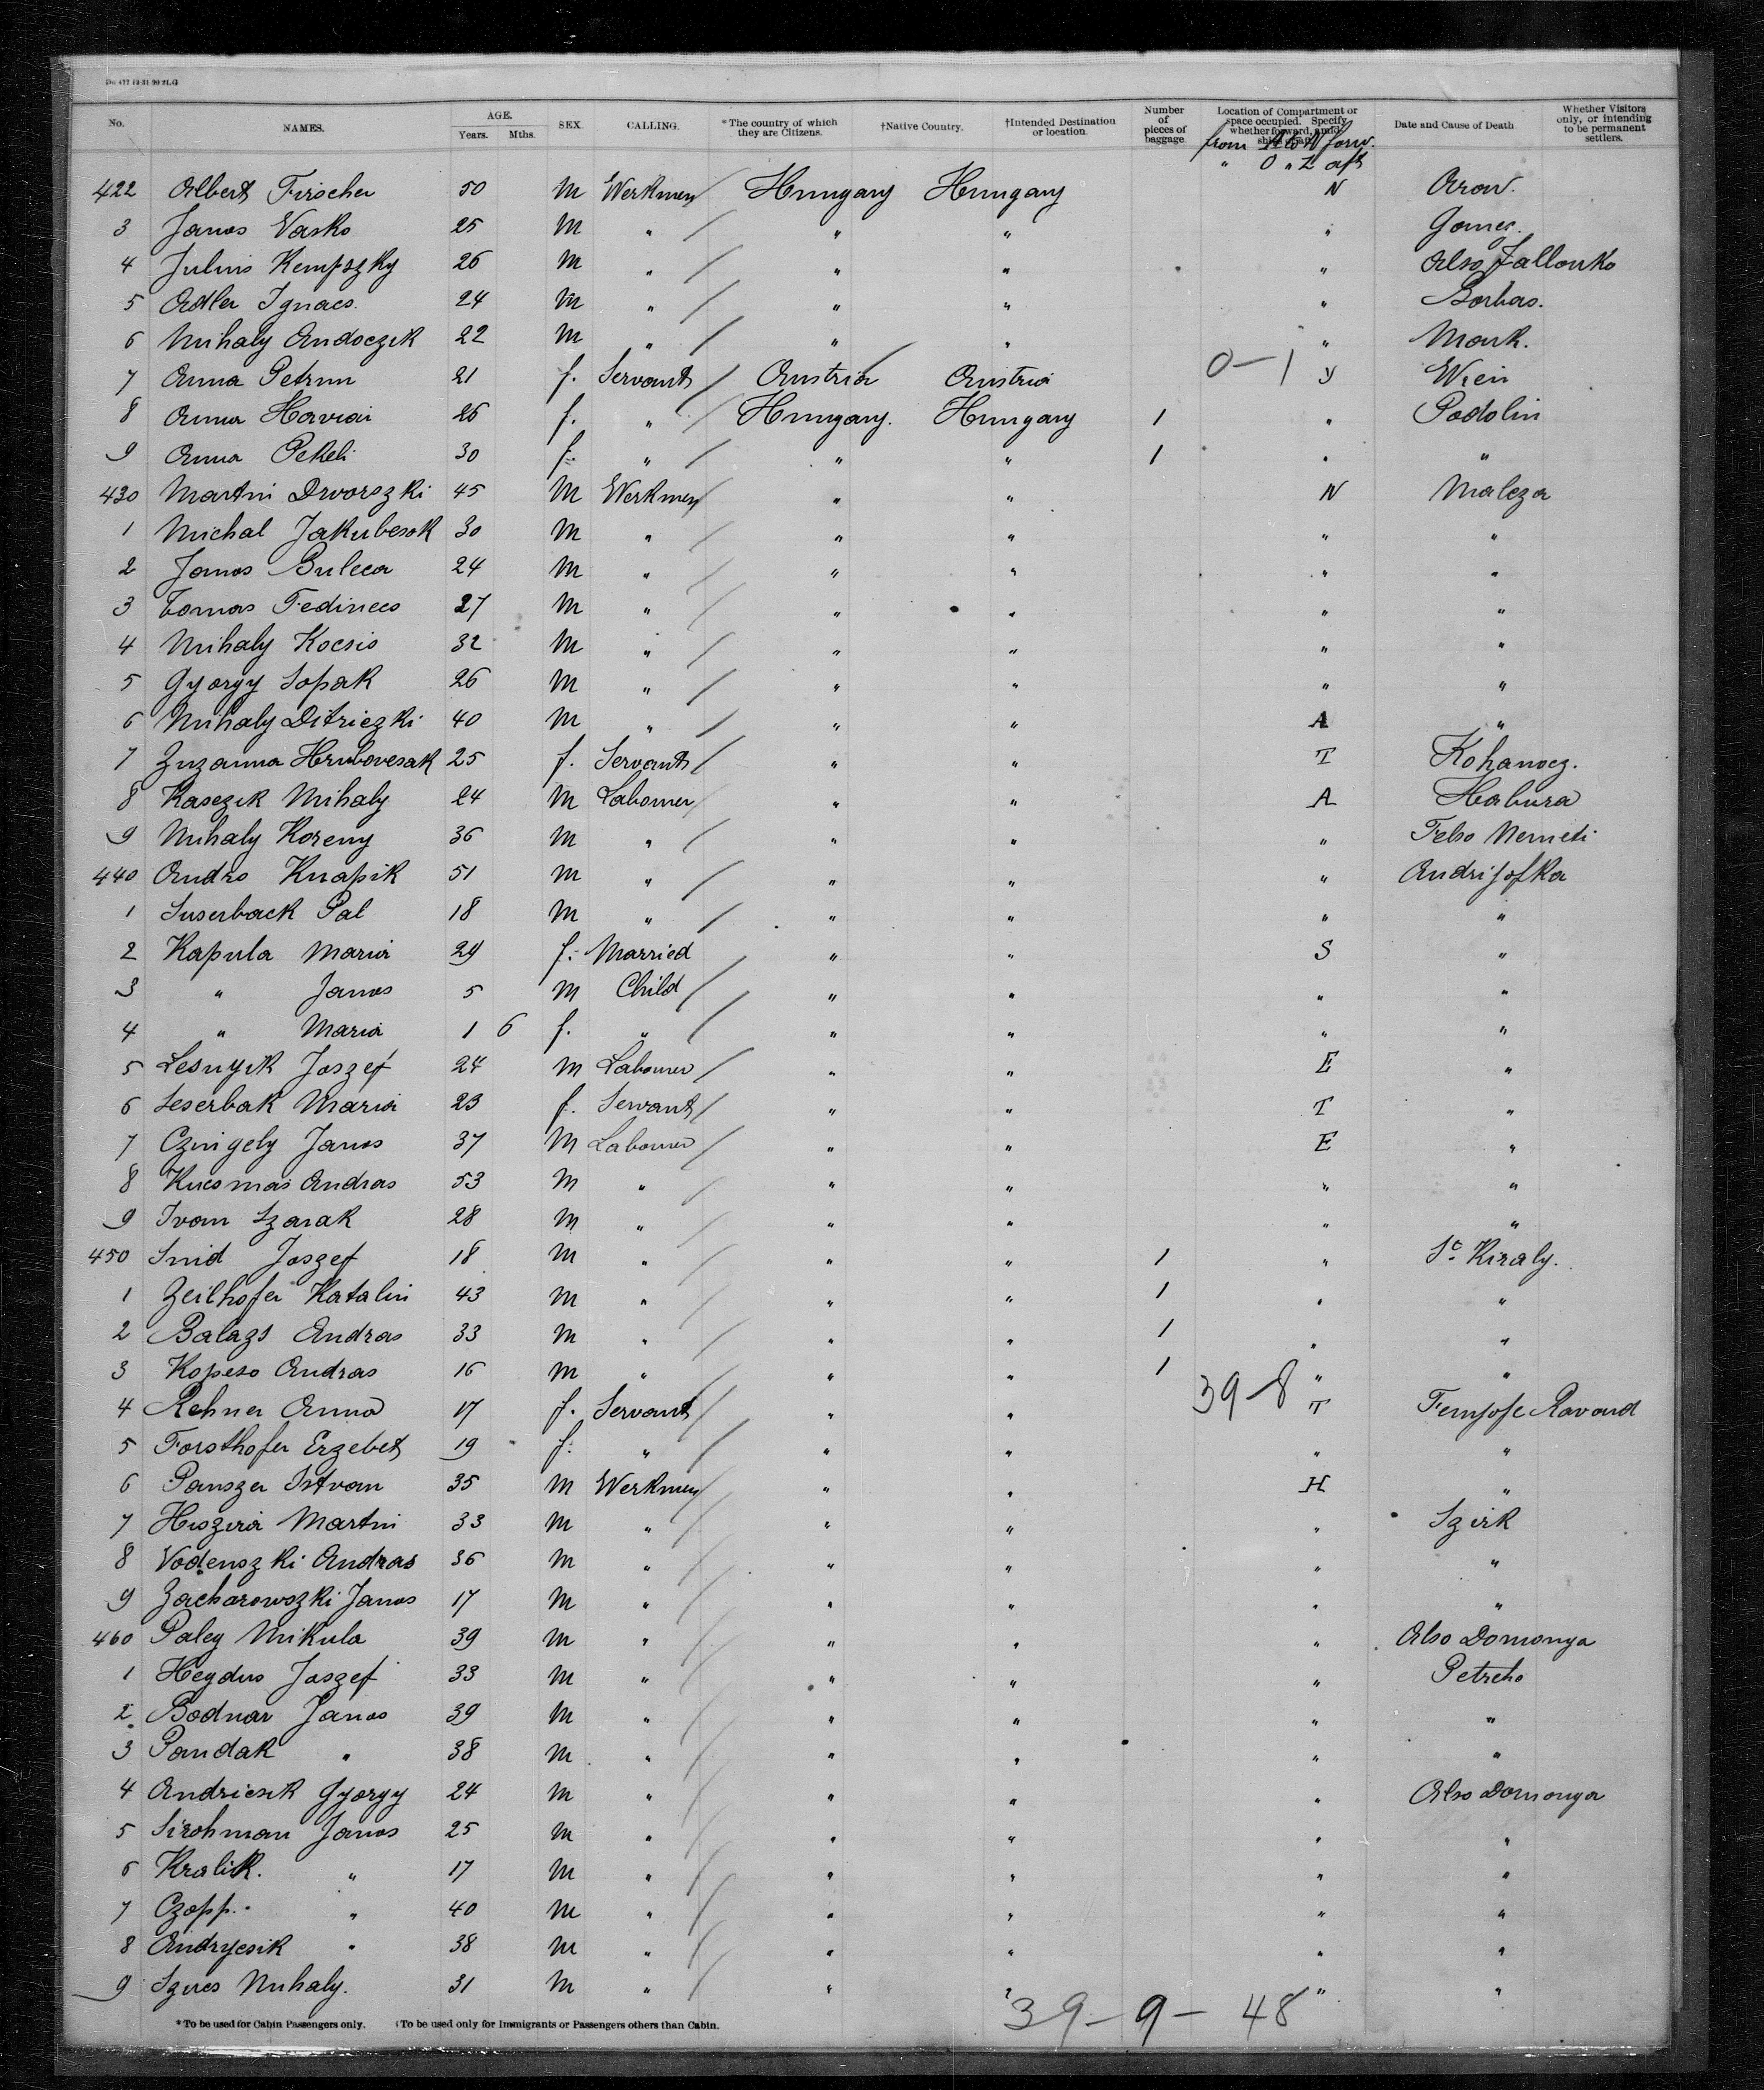 No. NAMES. AGE. Years. Mths. SEX. CALLING. *The country of which they are Citizens. †Native Country. †Intended Destination or location. Number of pieces of baggage Location of Compartment or space occupied. Specify whether forward, amidships or aft. Date and Cause of Death Whether Visitors only, or intending to be permanent settlers.
from A to N forw.
" O " Z aft
422 Albert Firscher 50 M Werkmen Hungary Hungary N Arow.
3 Janos Vasko 25 M " " " "
4 Julius Kempszky 26 M " " " " Also Jallonko
5 Adler Ignacs. 24 M " " " " Borbas.
6 Mihaly Andoczik 22 M " " " " Mark.
7 Anna Petrun 21 f. Servants Austria Austria 0-1 y Wien
8 Anna Haviar 26 f. " Hungary. Hungary 1 " Podolin
9 Anna Pekeli 30 f. " " " 1 " "
430 Martin Dworszki 45 M Werkmen " " N Malcza
1 Michal Jakubesok 30 M " " " " "
2 Janos Bulcca 24 M " " " " "
3 Tomas Fedinecs 27 M " " " " "
4 Mihaly Kocsis 32 M " " " " "
5 Gyorgy Sopak 26 M " " " " "
6 Mihaly Ditriczki 40 M " " " A "
7 Zuzanna Hrubovesak 25 f. Servants " " T Kohanocz.
8 Kasczik Mihaly 24 M Labourer " " A Habura
9 Mihaly Koreny 36 M " " " " Felso Nemeti
440 Andro Knapik 51 M " " " " Andrijofka
1 Suserback Pal 18 M " " " " "
2 Kapula Maria 29 f. Married " " S "
3 " Janos 5 M Child " " " "
4 " Maria 1 6 f. " " " " "
5 Lesnyik Joszef 24 M Labourer " " E "
6 Seserbak Maria 23 f. Servants " " T "
7 Czingely Janos 37 M Labourer " " E "
8 Kucsmas Andras 53 M " " " " "
9 Ivan Szarak 28 M " " " " "
450 Smid Joszef 18 M " " " 1 " St. Kiraly.
1 Zeilhofer Katalin 43 M " " " 1 " "
2 Balazs Andras 33 M " " " 1 " "
3 Kopcso Andras 16 M " " " 1 " "
4 Rehner Anna 17 f. Servants " " 39-8 T
5 Forsthofer Erzebet 19 f. " " " " "
6 Pansza Istvan 35 M Werkmen " " H "
7 Martin 33 M " " " " Szirk
8 Vodenszki Andras 36 M " " " " "
9 Zacharowszki Janos 17 M " " " " "
460 Paley Mikula 39 M " " " " Also Domonya
1 Heydus Joszef 33 M " " " " Petreho
2 Bodnar Janos 39 M " " " " "
3 Pandak " 38 M " " " " "
4 Andricsik Gyorgy 24 M " " " " Also Domonya
5 Sirohman Janos 25 M " " " " "
6 Kralik. " 17 M " " " " "
7 Czopp. " 40 M " " " " "
8 Andrycsik " 38 M " " " " "
9 Szucs Mihaly. 31 M " " " " "
39-9-48
*To be used for Cabin Passengers only. †To be used only for Immigrants or Passengers others than Cabin.